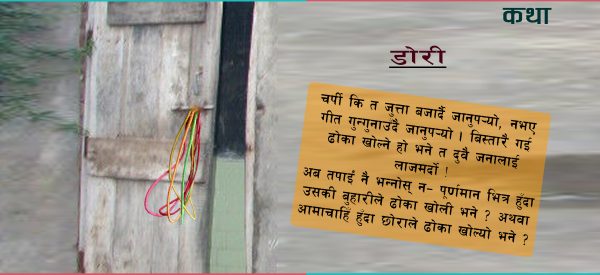 कथा
डोरी
चर्पी कि त जुत्ता बजार्दै जानुपर्‍यो, नभए
गीत गुन्गुनाउदै जानुपर्‍यो । बिस्तारै गई
ढोका खोल्ने हो भने त दुवै जनालाई
लाजमर्दो !
अब तपाईं नै भन्नोस् न- पूर्णमान भित्र हुँदा
उसकी बुहारीले ढोका खोली भने ? अथवा
आमाचाहिँ हुँदा छोराले ढोका खोल्यो भने ?